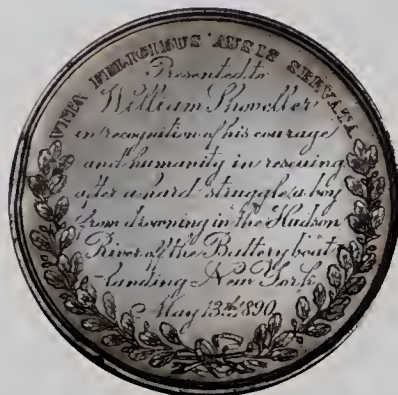 VITA FELICIBUS AUSIS SERVATA
Presented to
William Shoveller
in recognition of his courage
and humanity in rescuing
after a hard struggle a boy
from drowning in the Hudson
River off the Battery boat
landing New York
May 13th 1890